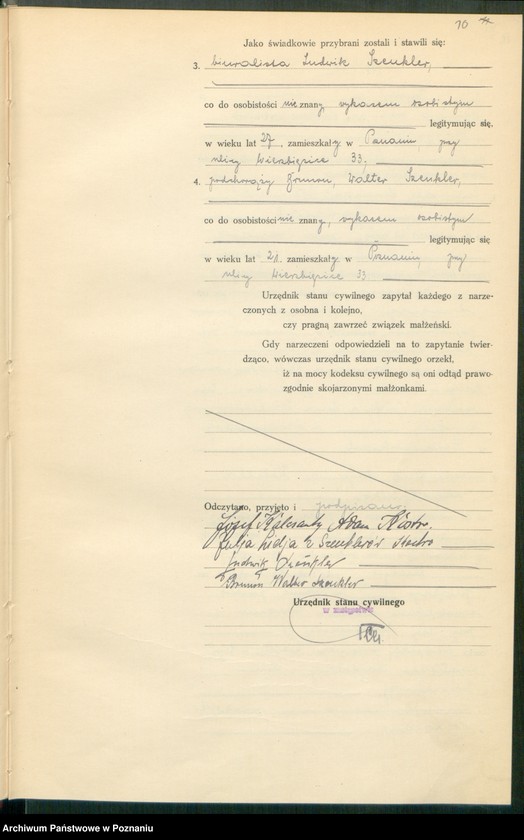 10
Jako świadkowie przybrani zostali i stawili się:
3. biuralista Ludwik Szenkler,
co do osobistości nie znany, wykazem osobistym
legitymując się,
w wieku lat 27, zamieszkały w Poznaniu, przy
ulicy Wierzbięcice 33,
4. podchorąży Brunon, Walter Szenkler,
co do osobistości nie znany, wykazem osobistym
legitymując się
w wieku lat 21, zamieszkały w Poznaniu, przy
ulicy Wierzbięcice 33
Urzędnik stanu cywilnego zapytał każdego z narze-
czonych z osobna i kolejno,
czy pragną zawrzeć związek małżeński.
Gdy narzeczeni odpowiedzieli na to zapytanie twier-
dząco, wówczas urzędnik stanu cywilnego orzekł,
iż na mocy kodeksu cywilnego są oni odtąd prawo-
zgodnie skojarzonymi małżonkami.
Odczytano, przyjęto i podpisano.
Józef Adam
Julja Lidja z Szenklerów
Ludwik Szenkler
Brunon Walter Szenkler
Urzędnik stanu cywilnego
w zastępstwie
Archiwum Państwowe w Poznaniu